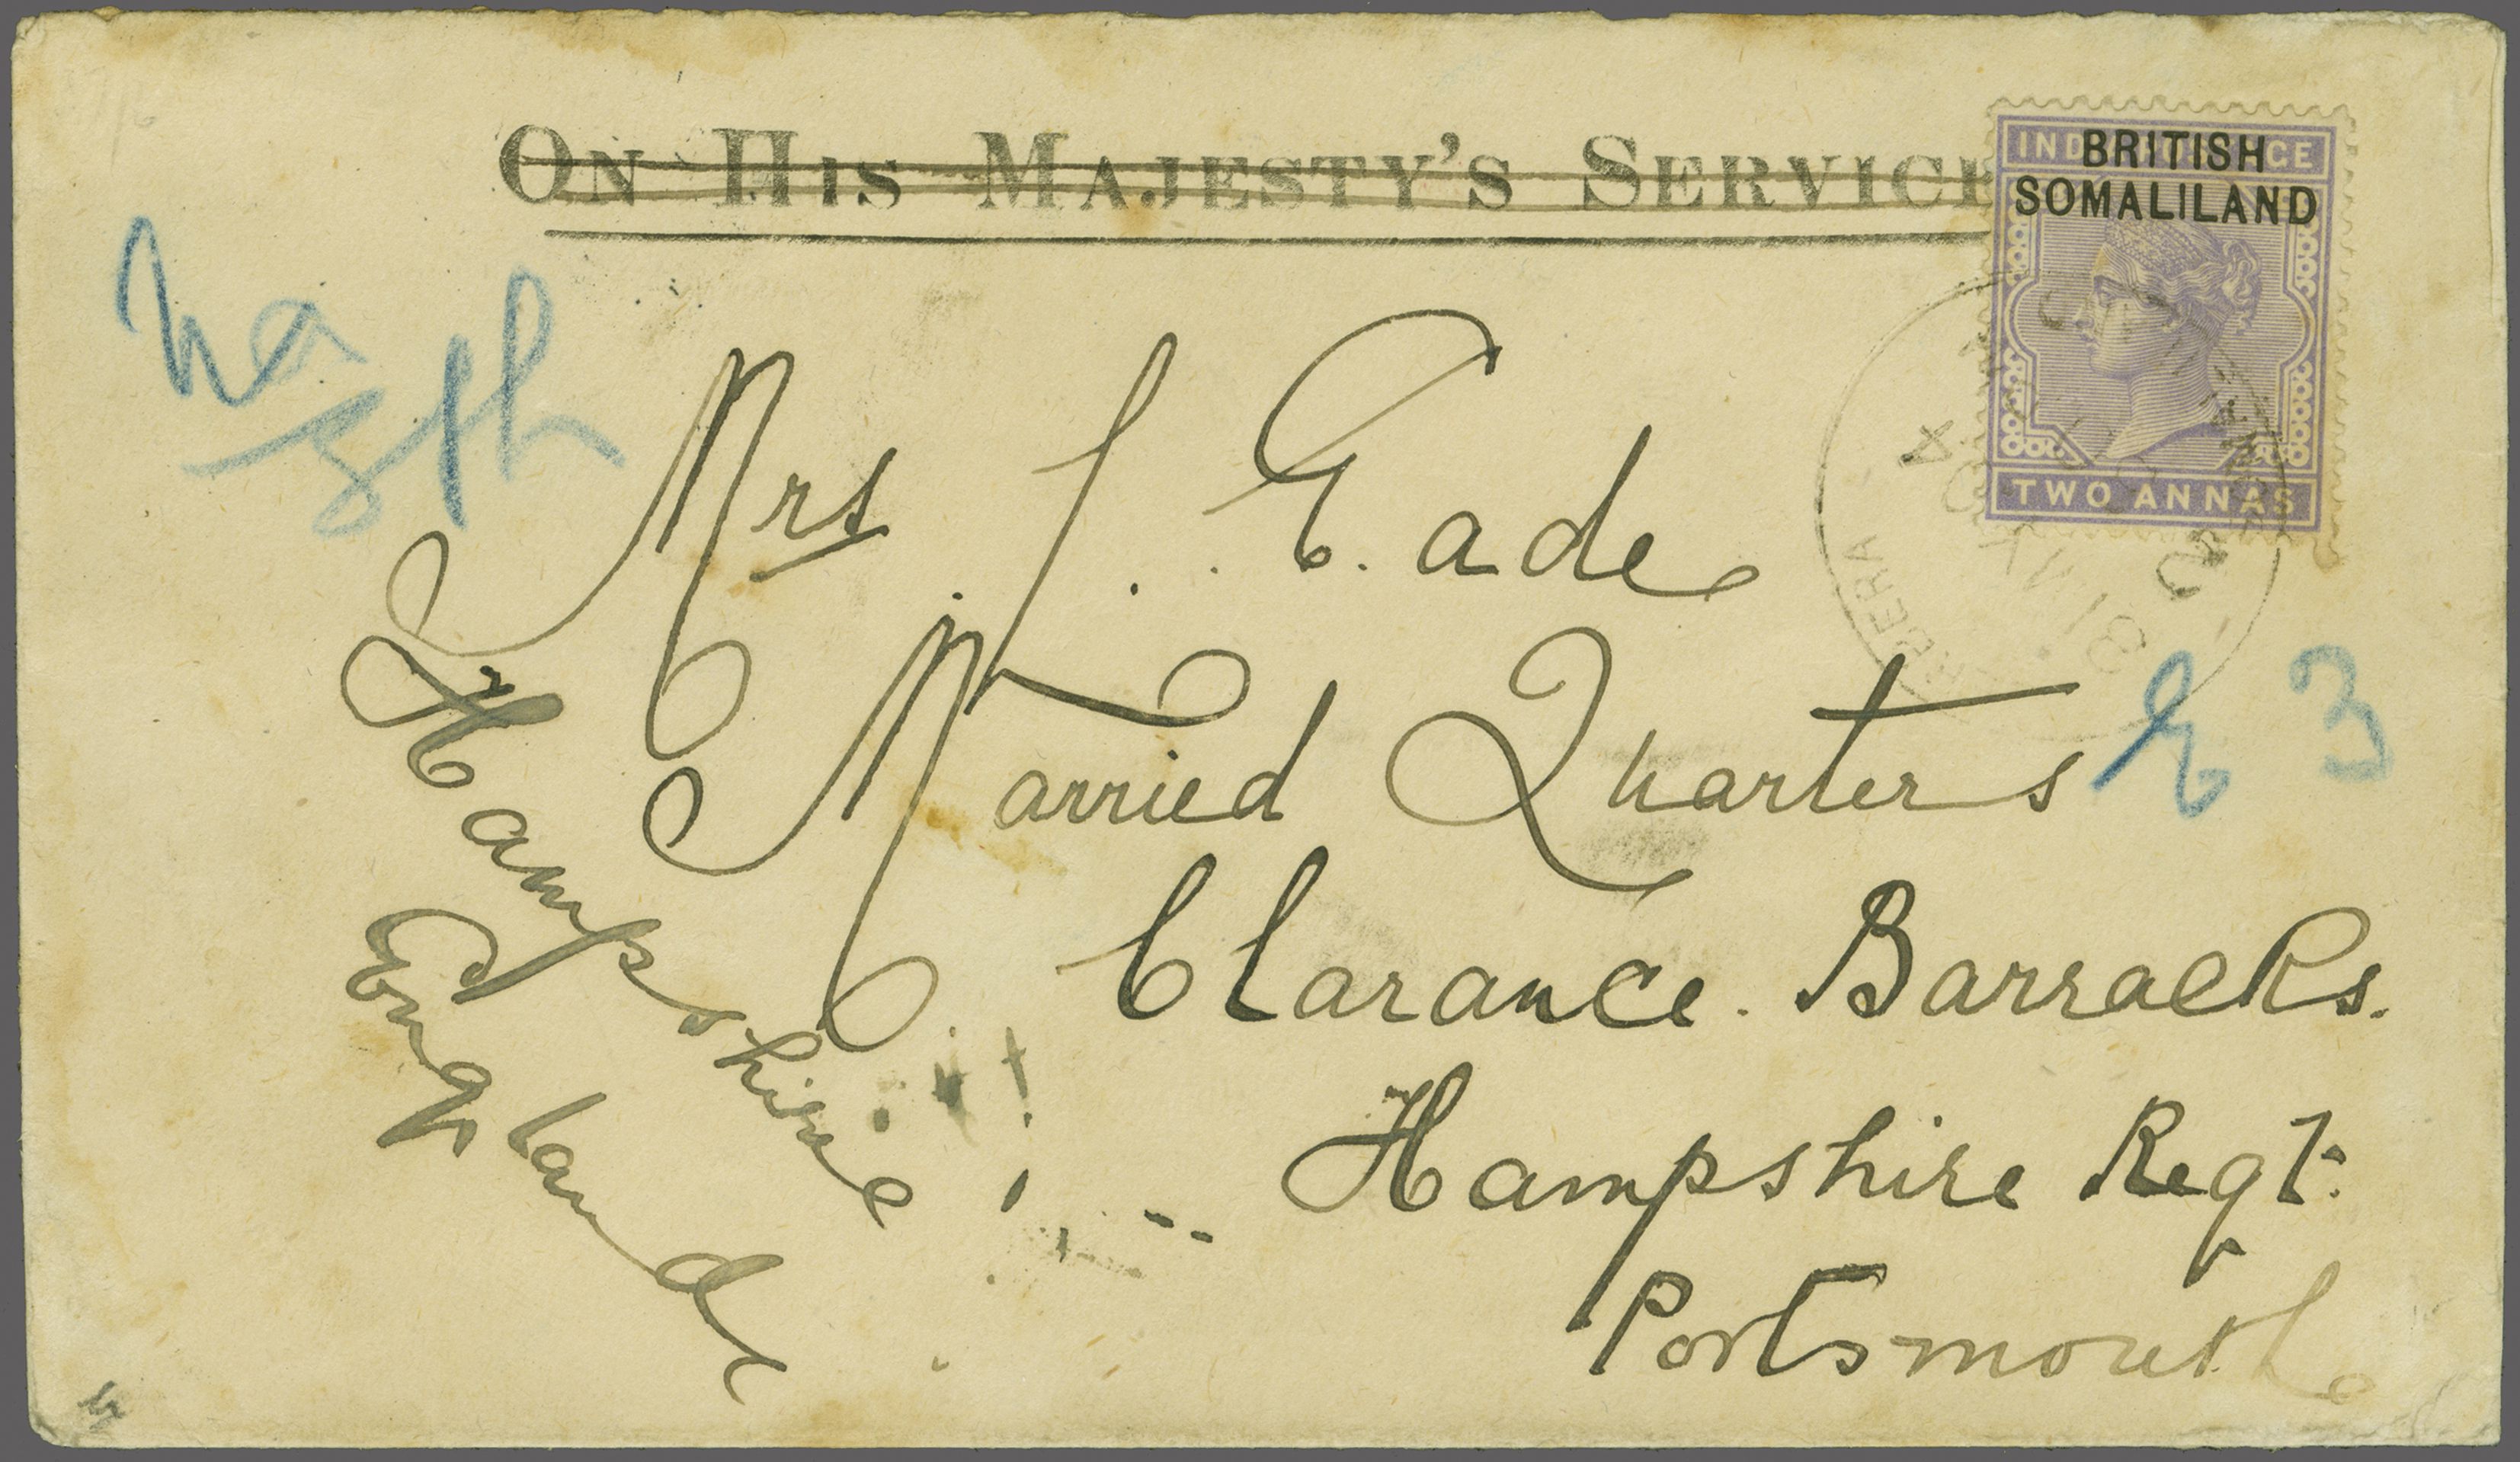 ON HIS MAJESTY'S SERVICE
BRITISH
SOMALILAND
TWO ANNAS
8th
Mrs L. Eade
Married Quarters
E 3
Clarance Barracks.
Hampshire Regt.
Portsmouth
Hampshire
England